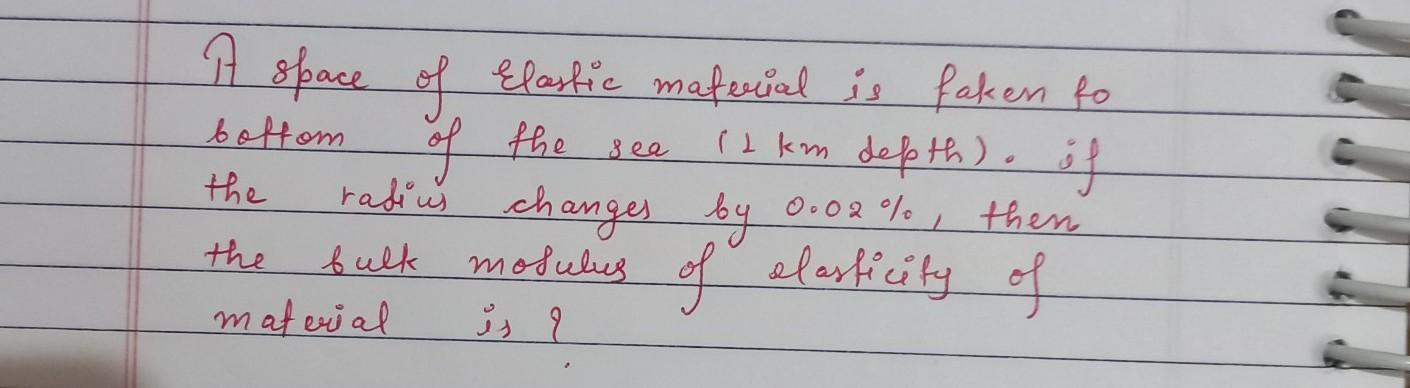 A space of Elastic material is taken to
bottom of the sea (1 km depth). if
the radius changes by 0.02%, then
the bulk modulus of elasticity of
material is ?